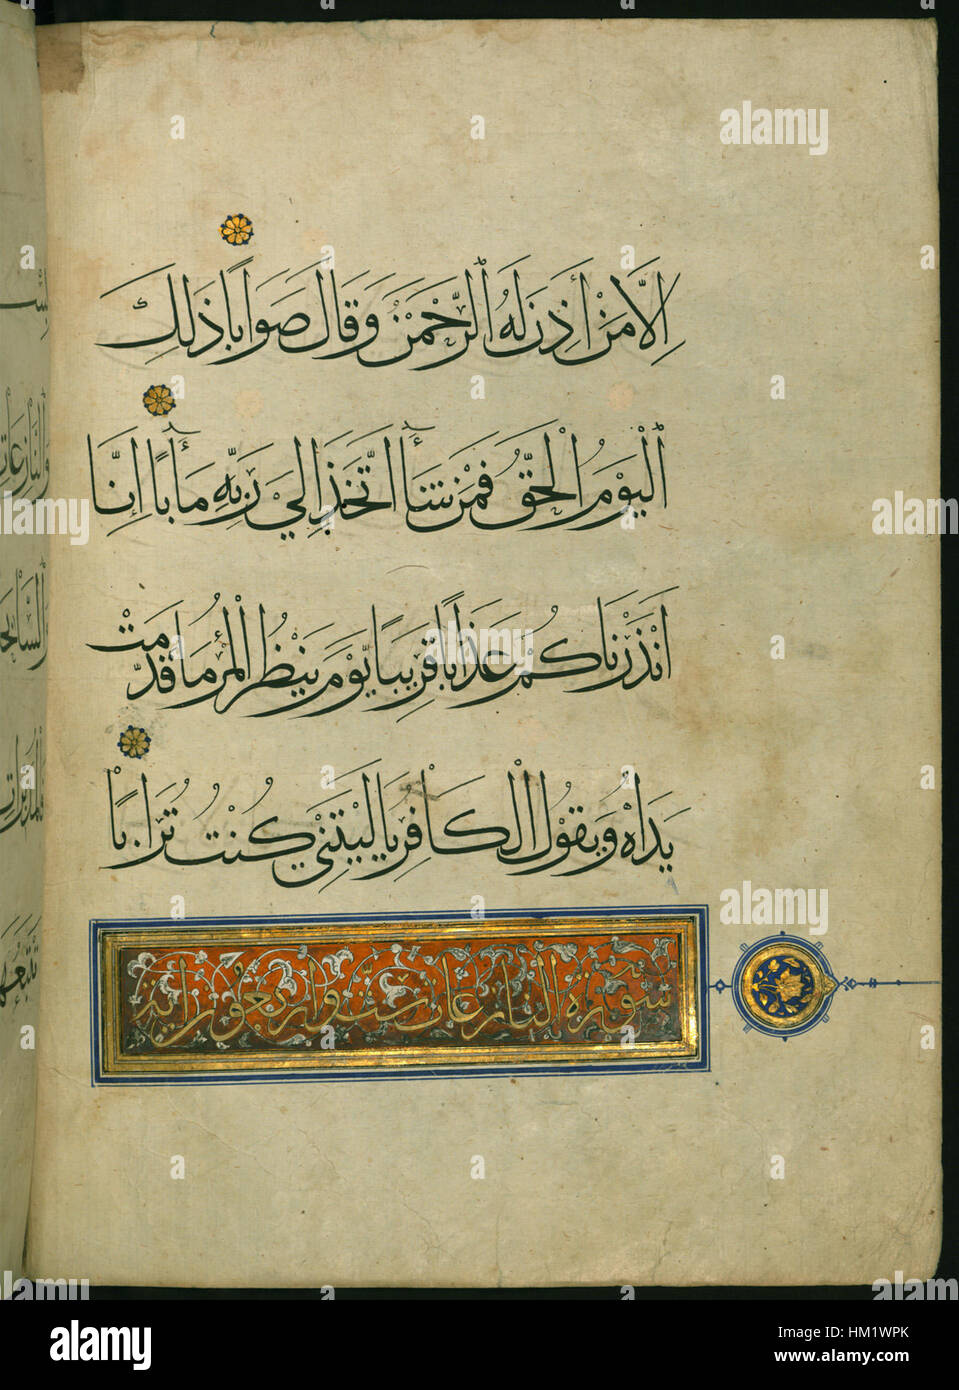 اِلَّا مَنْ أَذِنَ لَهُ ٱلرَّحْمَنُ وَقَالَ صَوَابًا ذَلِكَ
ٱلْيَوْمُ الْحَقُّ فَمَنْ شَآءَ اتَّخَذَ اِلَي رَبِّهِ مَأَبًا اِنَّا
اَنْذَرْنَاكُمْ عَذَابًا قَرِيبًا يَوْمَ يَنْظُرُ الْمَرْءُ مَا قَدَّمَتْ
يَدَاهُ وَيَقُولُ الْكَافِرُ يَالَيْتَنِي كُنْتُ تُرَابًا
سورة النازعات ست واربعون اية
alamy
Image ID: HM1WPK
www.alamy.com